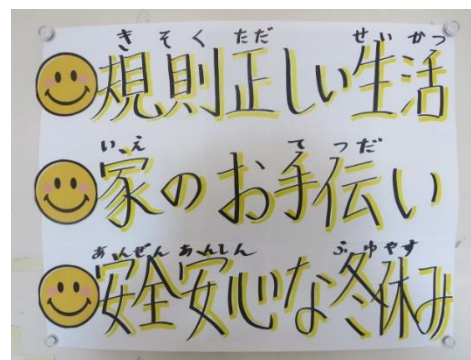 きそくただ せいかつ
規則正しい生活
いえ てつだ
家のお手伝い
あんぜんあんしん ふゆやす
安全安心な冬休み